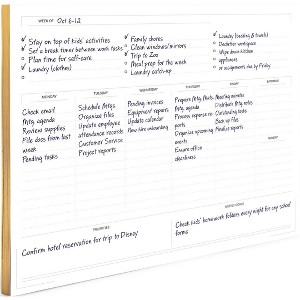 WEEK OF Oct 6-12
Stay on top of kids' activities
Set a break timer between work tasks
Plan time for self-care
Laundry (clothes)
Family chores
Clean windows/mirrors
Trip to Zoo
Meal prep for the week
Laundry catch-up
Laundry (bedding & towels)
Declutter workspace
Wipe down kitchen
appliances
or assignments due by Friday
MONDAY
Check email
Mtg agenda
Review supplies
File docs from last
week
Pending tasks
TUESDAY
Schedule Mtgs
Organize files
Update employee
attendance records
Customer Service
Project reports
WEDNESDAY
Pending invoices
Equipment repairs
Update calendar
New hire onboarding
THURSDAY
Prepare Mtg
Mtg agenda
Process expense
Organize upcoming
events
Ensure office
cleanliness
FRIDAY
Meeting minutes
Distribute Mtg notes
Outstanding tasks
Back up files
Finalize reports
SATURDAY
SUNDAY
PRIORITIES
Confirm hotel reservation for trip to Disney
Check kids' homework folders every night for any school
forms